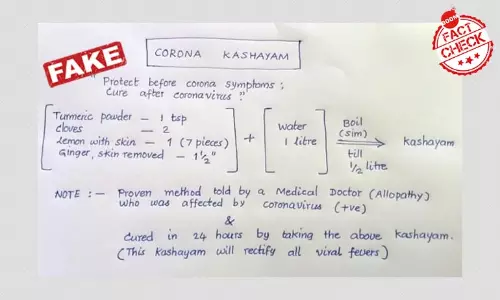 FAKE
100%
FACT
CHECK
CORONA KASHAYAM
Protect before corona symptoms ;
Cure after coronavirus !!
Turmeric powder — 1 tsp
cloves — 2
Lemon with skin — 1 (7 pieces)
Ginger, skin removed — 1½"
+
Water
1 litre
Boil
(sim)
till
½ litre
kashayam
NOTE :— Proven method told by a Medical Doctor (Allopathy)
who was affected by coronavirus (+ve)
&
cured in 24 hours by taking the above kashayam.
(This kashayam will rectify all viral fevers)